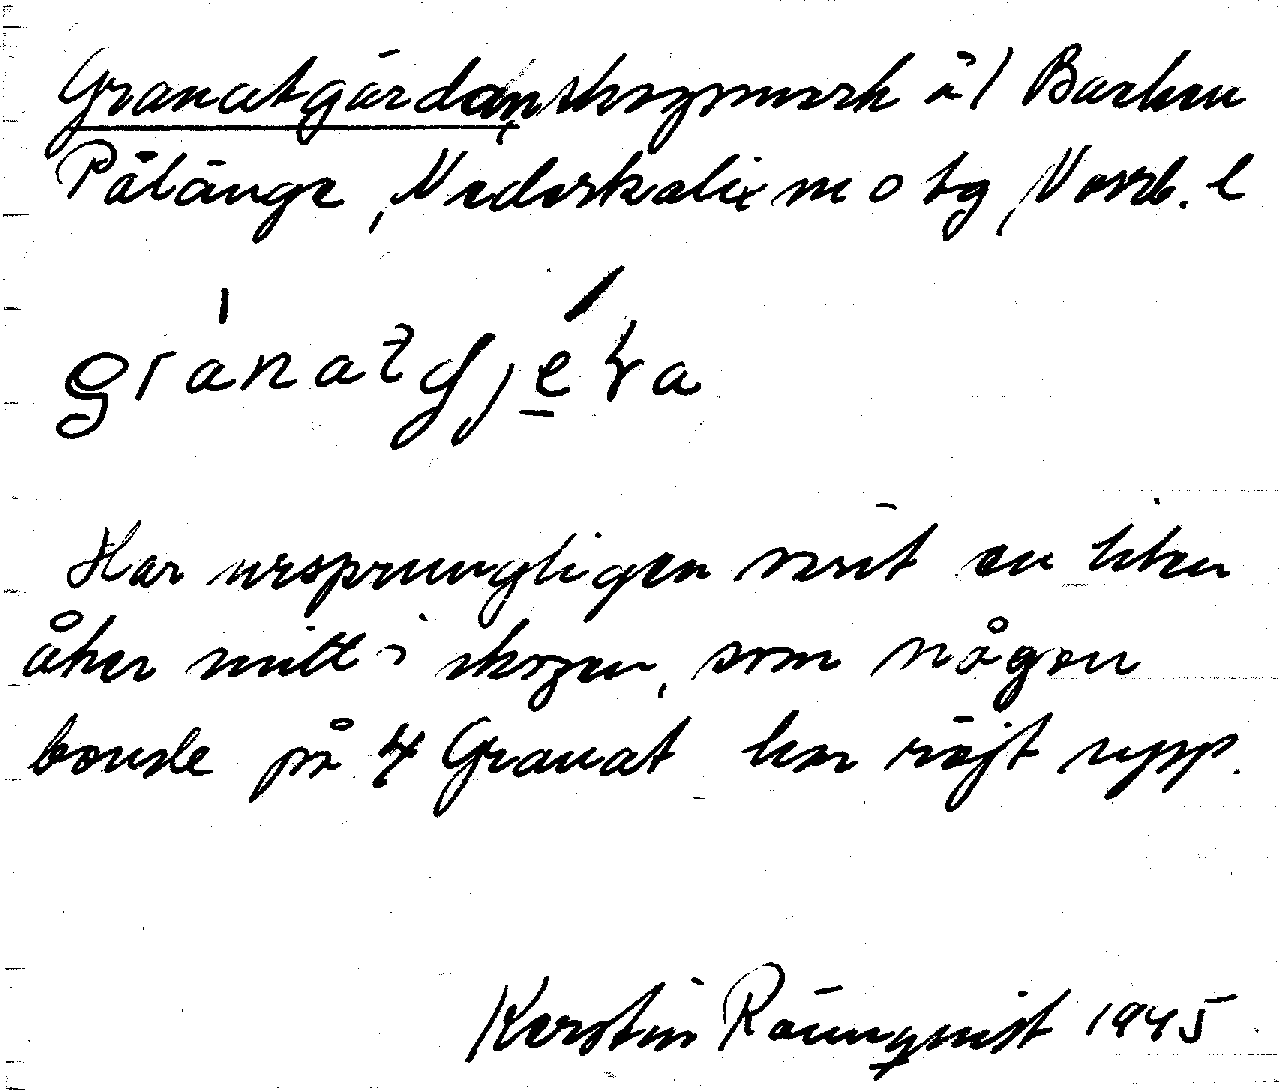 Granatgärdan skogsmark å 1 Backen
Pålänge, Nederkalix m o tg, Norrb. l
Har ursprungligen varit en liten
åker mitt i skogen, som någon
bonde på 4 Granat har röjt upp.
Kerstin Rönnqvist 1945